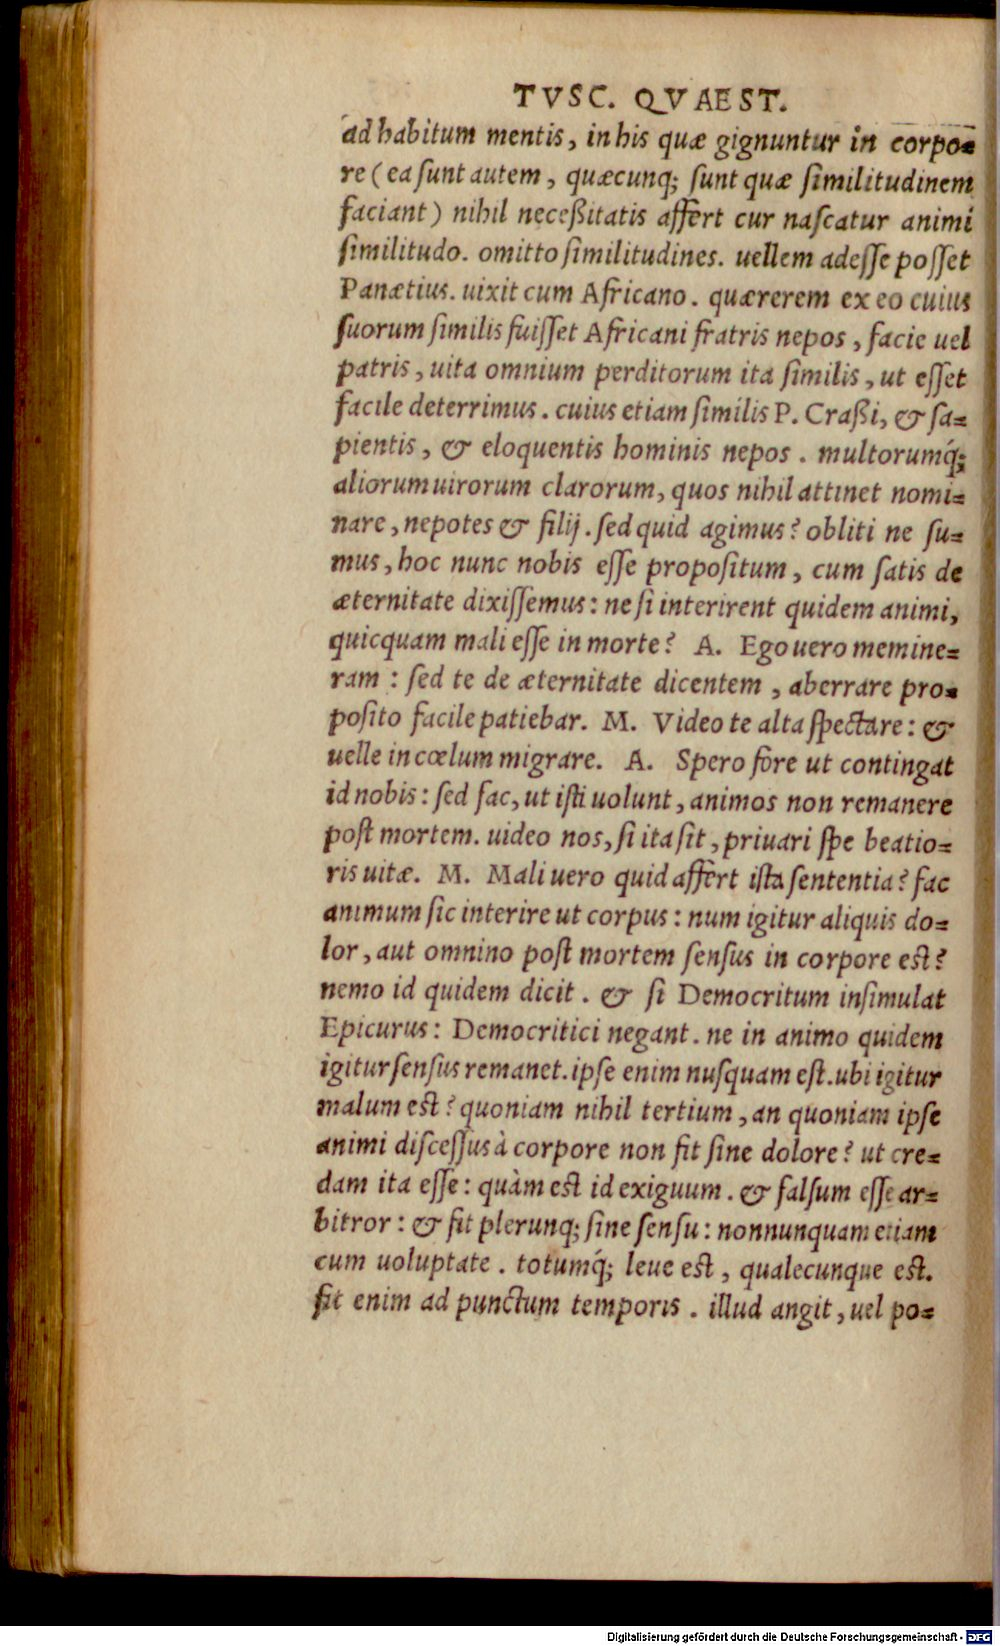 TVSC. QVAEST.
ad habitum mentis, in his quæ gignuntur in corpo=
re (ea sunt autem, quæcunq; sunt quæ similitudinem
faciant) nihil neceßitatis affert cur nascatur animi
similitudo. omitto similitudines. uellem adesse posset
Panætius. uixit cum Africano. quærerem ex eo cuius
suorum similis fuisset Africani fratris nepos, facie uel
patris, uita omnium perditorum ita similis, ut esset
facile deterrimus. cuius etiam similis P. Craßi, & sa=
pientis, & eloquentis hominis nepos. multorumq́;
aliorum uirorum clarorum, quos nihil attinet nomi=
nare, nepotes & filij. sed quid agimus? obliti ne su=
mus, hoc nunc nobis esse propositum, cum satis de
æternitate dixissemus: ne si interirent quidem animi,
quicquam mali esse in morte? A. Ego uero memine=
ram: sed te de æternitate dicentem, aberrare pro=
posito facile patiebar. M. Video te alta spectare: &
uelle in cœlum migrare. A. Spero fore ut contingat
id nobis: sed fac, ut isti uolunt, animos non remanere
post mortem. uideo nos, si ita sit, priuari spe beatio=
ris uitæ. M. Mali uero quid affert ista sententia? fac
animum sic interire ut corpus: num igitur aliquis do=
lor, aut omnino post mortem sensus in corpore est?
nemo id quidem dicit. & si Democritum insimulat
Epicurus: Democritici negant. ne in animo quidem
igitur sensus remanet. ipse enim nusquam est. ubi igitur
malum est? quoniam nihil tertium, an quoniam ipse
animi discessus à corpore non fit sine dolore? ut cre=
dam ita esse: quàm est id exiguum. & falsum esse ar=
bitror: & fit plerunq; sine sensu: nonnunquam etiam
cum uoluptate. totumq́; leue est, qualecunque est.
fit enim ad punctum temporis. illud angit, uel po=
Digitalisierung gefördert durch die Deutsche Forschungsgemeinschaft - DFG